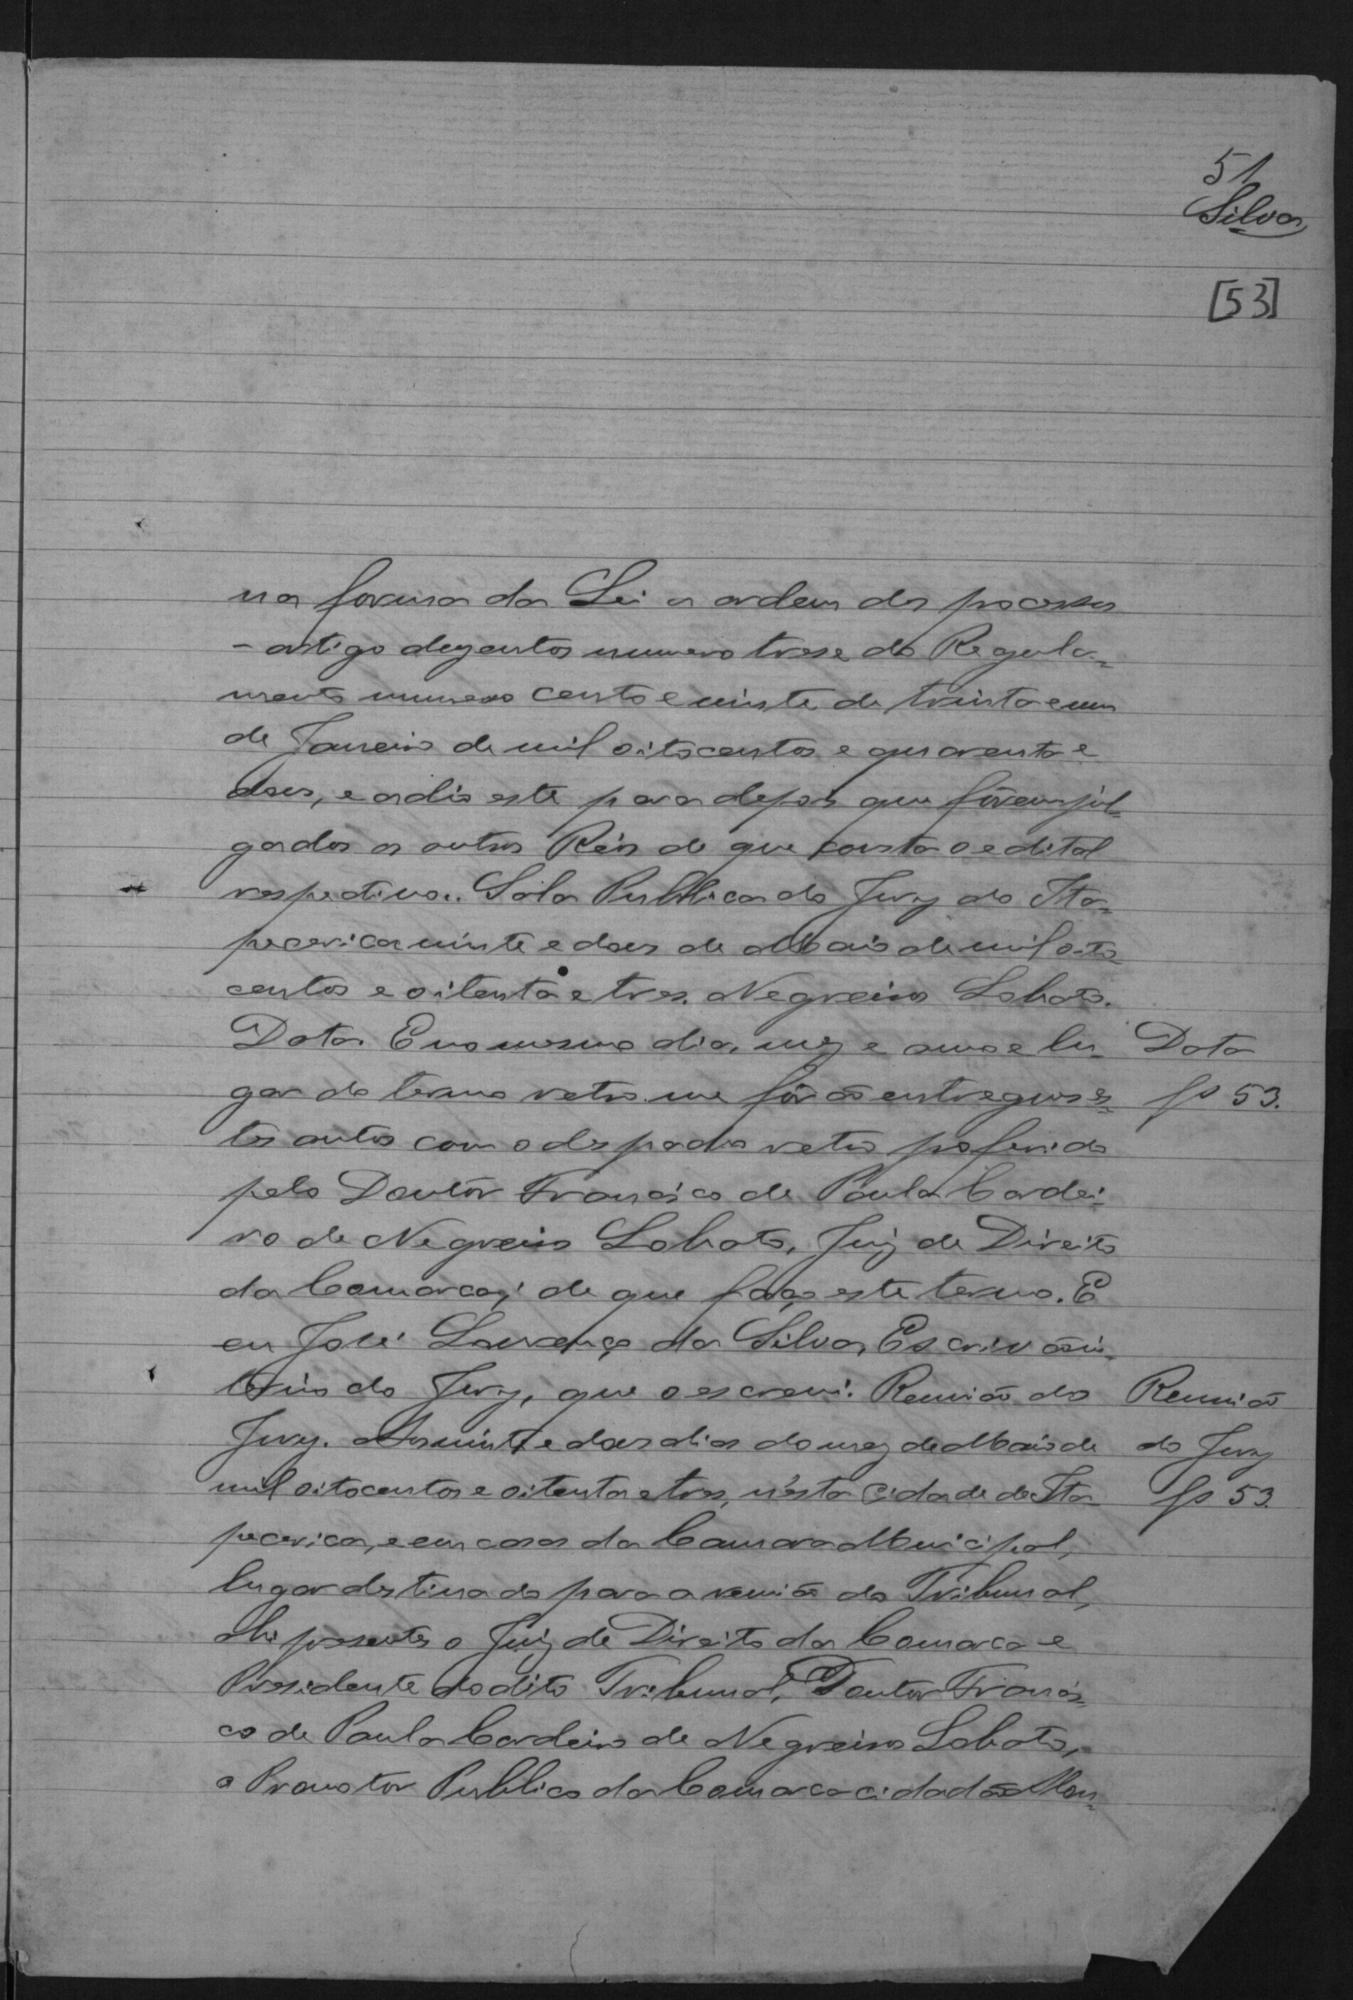 51
Silva
[53]
na forma da Lei a ordem dos processos
- artigo duzentos numero trese do Regula-
mento numero cento e vinte de trinta e um
de Janeiro de mil oitocentos e quarenta e
dous, e adio este para depois que fôrem jul-
gados os outros Réos de que consta o edital
respectivo. Sala Publica do Jury do Ita-
pecerica vinte e dous de Maio de mil oito
centos e oitenta e tres. Negreiros Lobato.
Data. E no mesmo dia, mez e anno e lu-
Data
gar do termo retro me fôrão entregues es-
fs 53.
tes autos com o despacho retro proferido
pelo Doutôr Francisco de Paula Cordei-
ro de Negreiros Lobato, Juiz de Direito
da Comarca; de que faço este termo. E
eu José Lourenço da Silva, Escrivão in-
terino do Jury, que o escrevi. Reunião do
Reunião
Jury. Aos vinte e dous dias do mez de Maio de
do Jury
mil oitocentos e oitenta e tres, n'ésta Cidade de Ita
fs 53.
pecerica, e em casa da Camara Municipal,
lugar destinado para a reunião do Tribunal,
ahi presentes o Juiz de Direito da Comarca e
Presidente do dito Tribunal, Doutôr Francis-
co de Paula Cordeiro de Negreiros Lobato,
o Promotor Publico da Comarca cidadão